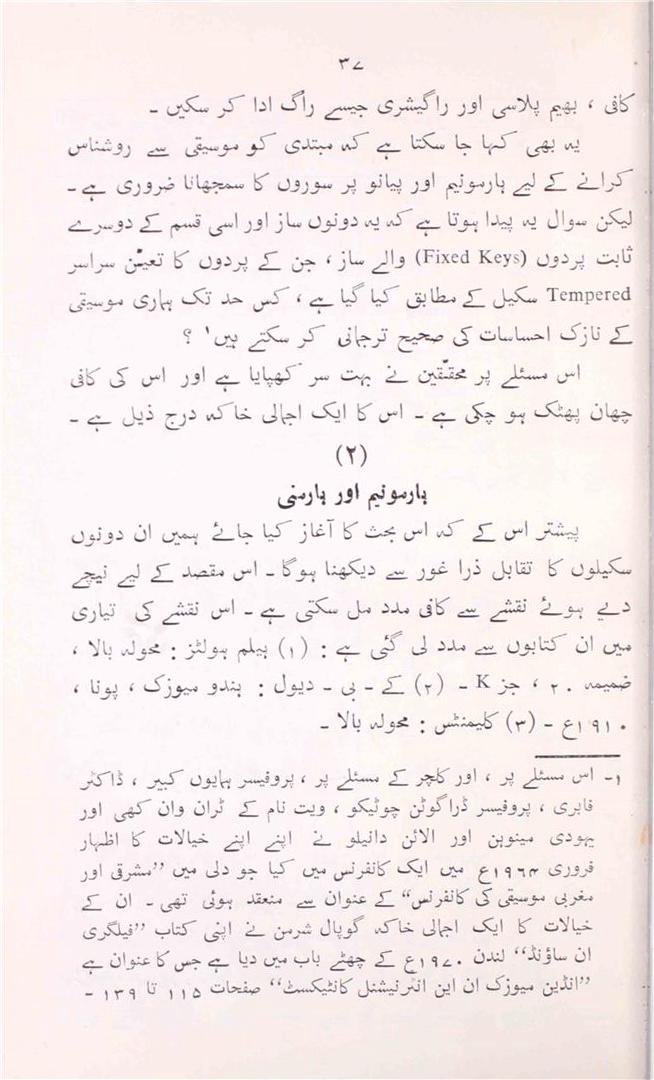 ۳۷
کافی ، بھیم پلاسی اور راگیشری جیسے راگ ادا کر سکیں ۔
یہ بھی کہا جا سکتا ہے کہ مبتدی کو موسیقی سے روشناس
کرانے کے لیے ہارمونیم اور پیانو پر سوروں کا سمجھانا ضروری ہے ۔
لیکن سوال یہ پیدا ہوتا ہے کہ یہ دونوں ساز اور اسی قسم کے دوسرے
ثابت پردوں (Fixed Keys) والے ساز ، جن کے پردوں کا تعیّن سراسر
Tempered سکیل کے مطابق کیا گیا ہے ، کس حد تک ہماری موسیقی
کے نازک احساسات کی صحیح ترجمانی کر سکتے ہیں ۱ ؟
اس مسئلے پر محققین نے بہت سر کھپایا ہے اور اس کی کافی
چھان پھٹک ہو چکی ہے ۔ اس کا ایک اجمالی خاکہ درج ذیل ہے ۔
(۲)
ہارمونیم اور ہارمنی
پیشتر اس کے کہ اس بحث کا آغاز کیا جائے ہمیں ان دونوں
سکیلوں کا تقابل ذرا غور سے دیکھنا ہوگا ۔ اس مقصد کے لیے نیچے
دیے ہوئے نقشے سے کافی مدد مل سکتی ہے ۔ اس نقشے کی تیاری
میں ان کتابوں سے مدد لی گئی ہے : (۱) ہیلم ہولٹز : محولہ بالا ،
ضمیمہ ۲۰ ، جز K ۔ (۲) کے ۔ بی ۔ دیول : ہندو میوزک ، پونا ،
۱۹۱۰ع ۔ (۳) کلیمنٹس : محولہ بالا ۔
۱۔ اس مسئلے پر ، اور کلچر کے مسئلے پر ، پروفیسر ہمایوں کبیر ، ڈاکٹر
فابری ، پروفیسر ڈراگوٹن چوٹیکو ، ویت نام کے ٹران وان کھی اور
یہودی مینوہن اور الائن دانیلو نے اپنے اپنے خیالات کا اظہار
فروری ۱۹۶۴ع میں ایک کانفرنس میں کیا جو دلی میں ”مشرقی اور
مغربی موسیقی کی کانفرنس“ کے عنوان سے منعقد ہوئی تھی ۔ ان کے
خیالات کا ایک اجمالی خاکہ گوپال شرمن نے اپنی کتاب ”فیلگری
ان ساؤنڈ“ لندن ۱۹۷۰ع کے چھٹے باب میں دیا ہے جس کا عنوان ہے
”انڈین میوزک ان این انٹرنیشنل کانٹیکسٹ“ صفحات ۱۱۵ تا ۱۳۹ ۔